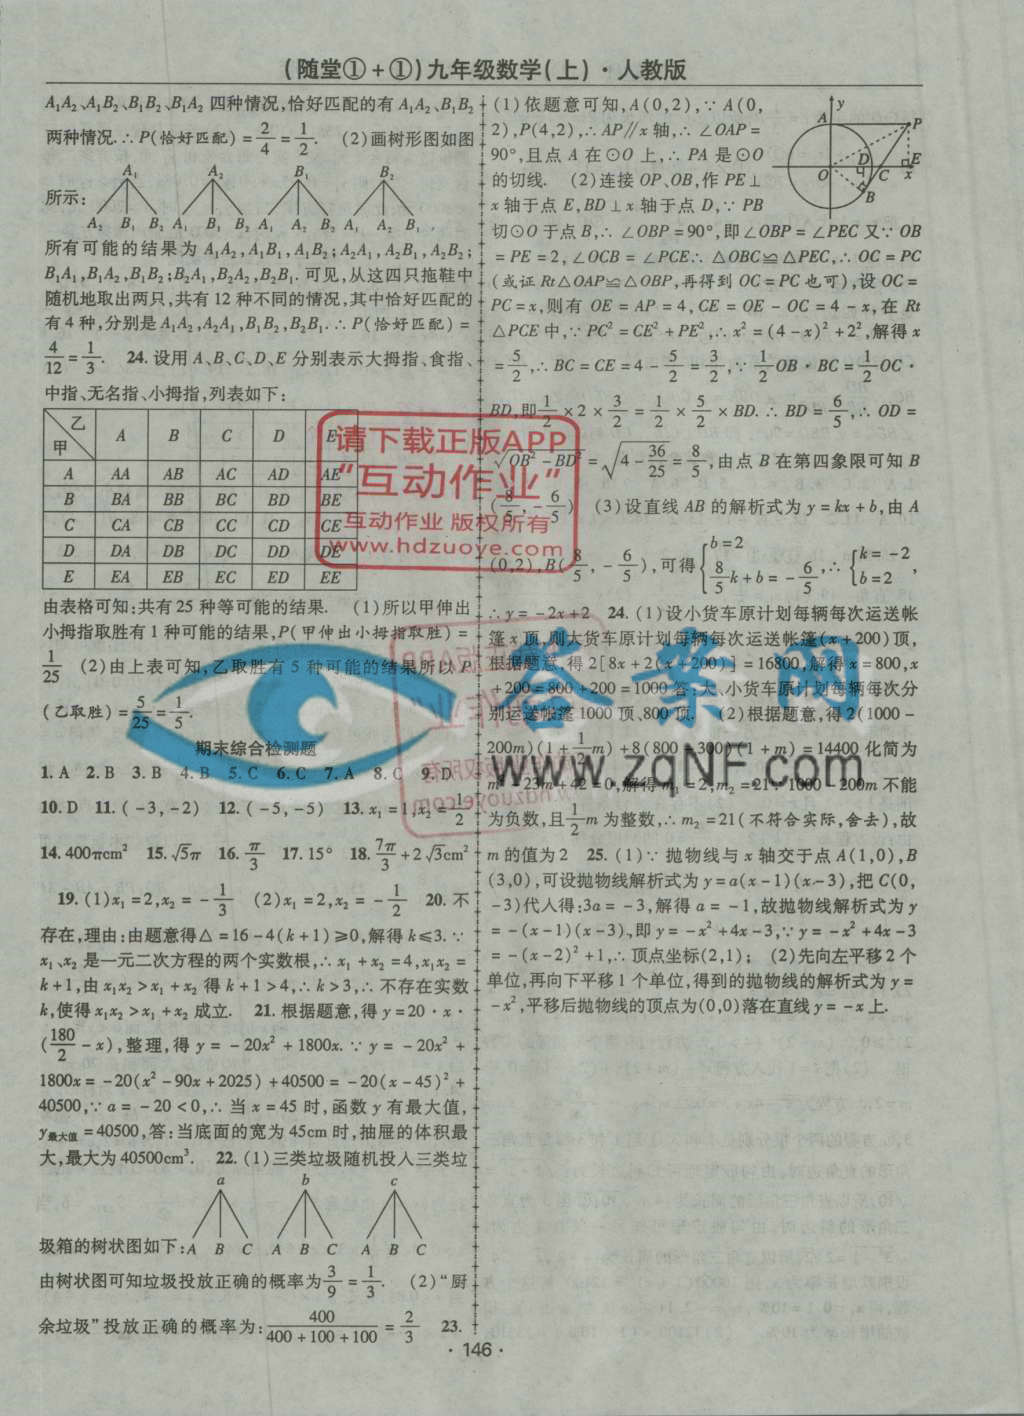 (随堂①+①)九年级数学(上)·人教版
A₁A₂、A₁B₂、B₁B₂、B₁A₂ 四种情况,恰好匹配的有 A₁A₂、B₁B₂
两种情况.∴P(恰好匹配)=2/4=1/2. (2)画树形图如图
A₁ A₂ B₁ B₂
所示:
A₂ B₁ B₂ A₁ B₁ B₂ A₁ A₂ B₂ A₁ A₂ B₁
所有可能的结果为 A₁A₂,A₁B₁,A₁B₂;A₂A₁,A₂B₁,A₂B₂;
B₁A₁,B₁A₂,B₁B₂;B₂A₁,B₂A₂,B₂B₁.可见,从这四只拖鞋中
随机地取出两只,共有 12 种不同的情况,其中恰好匹配的
有 4 种,分别是 A₁A₂,A₂A₁,B₁B₂,B₂B₁.∴P(恰好匹配)=
4/12=1/3. 24.设用 A、B、C、D、E 分别表示大拇指、食指、
中指、无名指、小拇指,列表如下:
乙 甲 A B C D E
A AA AB AC AD AE
B BA BB BC BD BE
C CA CB CC CD CE
D DA DB DC DD DE
E EA EB EC ED EE
由表格可知:共有 25 种等可能的结果. (1)所以甲伸出
小拇指取胜有 1 种可能的结果,P(甲伸出小拇指取胜)=
1/25 (2)由上表可知,乙取胜有 5 种可能的结果所以 P
(乙取胜)=5/25=1/5.
期末综合检测题
1.A 2.B 3.B 4.B 5.C 6.C 7.A 8.C 9.D
10.D 11.(-3,-2) 12.(-5,-5) 13.x₁=1,x₂=1/2
14.400πcm² 15.√5π 16.π/3 17.15° 18.7π/3+2√3cm²
19.(1)x₁=2,x₂=-1/3 (2)x₁=2,x₂=-1/2 20.不
存在,理由:由题意得△=16-4(k+1)≥0,解得 k≤3.∵
x₁、x₂ 是一元二次方程的两个实数根,∴x₁+x₂=4,x₁x₂=
k+1,由 x₁x₂>x₁+x₂ 得 k+1>4,∴k>3,∴不存在实数
k,使得 x₁x₂>x₁+x₂ 成立. 21.根据题意,得 y=20·x·
(180/2-x),整理,得 y=-20x²+1800x.∵y=-20x²+
1800x=-20(x²-90x+2025)+40500=-20(x-45)²+
40500,∵a=-20<0,∴当 x=45 时,函数 y 有最大值,
y最大值=40500,答:当底面的宽为 45cm 时,抽屉的体积最
大,最大为 40500cm³. 22.(1)三类垃圾随机投入三类垃
a b c
圾箱的树状图如下:A B C A B C A B C
由树状图可知垃圾投放正确的概率为3/9=1/3. (2)“厨
余垃圾”投放正确的概率为:400/(400+100+100)=2/3 23.
(1)依题意可知,A(0,2),∵A(0,
2),P(4,2),∴AP∥x 轴,∴∠OAP=
90°,且点 A 在⊙O 上,∴PA 是⊙O
的切线. (2)连接 OP、OB,作 PE⊥
x 轴于点 E,BD⊥x 轴于点 D,∵PB
y A P D O C E x B
切⊙O 于点 B,∴∠OBP=90°,即∠OBP=∠PEC 又∵OB
=PE=2,∠OCB=∠PCE∴△OBC≌△PEC,∴OC=PC
(或证 Rt△OAP≌△OBP,再得到 OC=PC 也可),设 OC=
PC=x,则有 OE=AP=4,CE=OE-OC=4-x,在 Rt
△PCE 中,∵PC²=CE²+PE²,∴x²=(4-x)²+2²,解得 x
=5/2,∴BC=CE=4-5/2=3/2,∵1/2OB·BC=1/2OC·
BD,即1/2×2×3/2=1/2×5/2×BD.∴BD=6/5,∴OD=
√(OB²-BD²)=√(4-36/25)=8/5,由点 B 在第四象限可知 B
(8/5,-6/5) (3)设直线 AB 的解析式为 y=kx+b,由 A
(0,2),B(8/5,-6/5),可得{b=2 8/5k+b=-6/5,∴{k=-2 b=2,
∴y=-2x+2 24.(1)设小货车原计划每辆每次运送帐
篷 x 顶,则大货车原计划每辆每次运送帐篷(x+200)顶,
根据题意,得 2[8x+2(x+200)]=16800,解得 x=800,x
+200=800+200=1000 答:大、小货车原计划每辆每次分
别运送帐篷 1000 顶、800 顶. (2)根据题意,得 2(1000-
200m)(1+1/2m)+8(800-300)(1+m)=14400 化简为
m²-23m+42=0,解得 m₁=2,m₂=21∵1000-200m 不能
为负数,且1/2m 为整数,∴m₂=21(不符合实际,舍去),故
m 的值为 2 25.(1)∵抛物线与 x 轴交于点 A(1,0),B
(3,0),可设抛物线解析式为 y=a(x-1)(x-3),把 C(0,
-3)代入得:3a=-3,解得 a=-1,故抛物线解析式为 y
=-(x-1)(x-3),即 y=-x²+4x-3,∵y=-x²+4x-3
=-(x-2)²+1,∴顶点坐标(2,1); (2)先向左平移 2 个
单位,再向下平移 1 个单位,得到的抛物线的解析式为 y=
-x²,平移后抛物线的顶点为(0,0)落在直线 y=-x 上.
·146·
请下载正版APP
“互动作业”
互动作业 版权所有
www.hdzuoye.com
答案网
www.zqNF.com